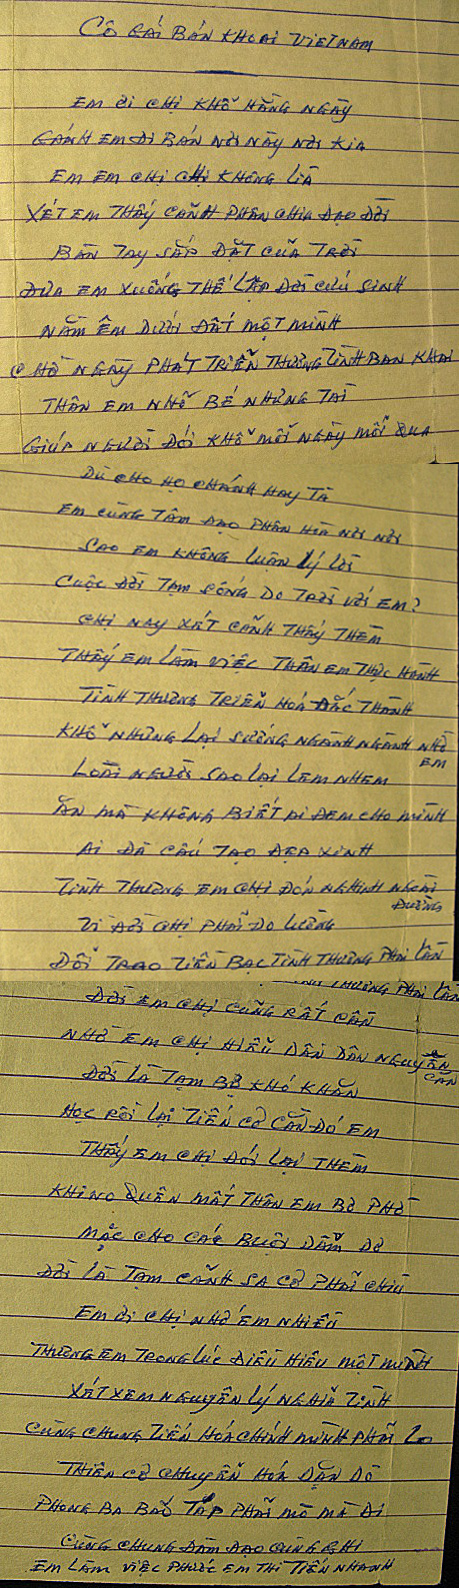 CÔ GÁI BÁN KHOAI VIETNAM
EM ƠI CHỊ KHỔ HẰNG NGÀY
GÁNH EM ĐI BÁN NƠI NÀY NƠI KIA
EM EM CHỊ CHỊ KHÔNG LÌA
XÉT EM THẤY CẢNH PHÂN CHIA ĐẠO ĐỜI
BÀN TAY SẮP ĐẶT CỦA TRỜI
ĐƯA EM XUỐNG THẾ LẬP ĐỜI CỨU SINH
NẰM ÊM DƯỚI ĐẤT MỘT MÌNH
CHỜ NGÀY PHÁT TRIỂN THƯƠNG TÌNH BAN KHAI
THÂN EM NHỎ BÉ NHƯNG TÀI
GIÚP NGƯỜI ĐÓI KHỔ MỖI NGÀY MỖI QUA
DÙ CHO HỌ CHÁNH HAY TÀ
EM CŨNG TÂM ĐẠO PHÂN HÒA NƠI NƠI
SAO EM KHÔNG LUẬN LÝ LỜI
CUỘC ĐỜI TẠM SỐNG DO TRỜI VỚI EM?
CHỊ NAY XÉT CẢNH THẤY THÈM
THẤY EM LÀM VIỆC THÂN EM THỰC HÀNH
TÌNH THƯƠNG TRIỂN HOÁ ĐẮC THÀNH
KHỔ NHƯNG LẠI SƯỚNG NGÀNH NGÀNH NHỜ EM
LOÀI NGƯỜI SAO LẠI LEM NHEM
ĂN MÀ KHÔNG BIẾT ĐI ĐEM CHO MÌNH
AI ĐÃ CẤU TẠO ĐẸP XINH
TÌNH THƯƠNG EM CHỊ ĐÓN NGHINH NGOÀI ĐƯỜNG
VÌ ĐỜI CHỊ PHẢI ĐO LƯỜNG
ĐỔI TRAO TIỀN BẠC TÌNH THƯƠNG PHẢI CẦN
THƯƠNG PHẢI CẦN
ĐỜI EM CHỊ CŨNG RẤT CẦN
NHỜ EM CHỊ HIỂU DẦN DẦN NGUYÊN CĂN
ĐỜI LÀ TẠM BỢ KHÓ KHĂN
HỌC RỒI LẠI TIẾN CƠ CĂN ĐÓ EM
THẤY EM CHỊ ĐÓI LẠI THÈM
KHI NO QUÊN MẤT THÂN EM BƠ PHỜ
MẶC CHO CÁC BUỔI DẦM DƠ
ĐỜI LÀ TẠM CẢNH SA CƠ PHẢI CHIỀU
EM ƠI CHỊ NHỚ EM NHIỀU
THƯƠNG EM TRONG LÚC ĐIÊU HIÊU MỘT MÌNH
XÉT XEM NGUYÊN LÝ NGHĨA TÌNH
CÙNG CHUNG TIẾN HÓA CHÍNH MÌNH PHẢI LO
THIÊN CƠ CHUYỂN HÓA DẶN DÒ
PHONG BA BÃO TÁP PHẢI MÒ MÀ ĐI
CÙNG CHUNG ĐÀM ĐẠO CÙNG GHI
EM LÀM VIỆC PHƯỚC EM THÌ TIẾN NHANH